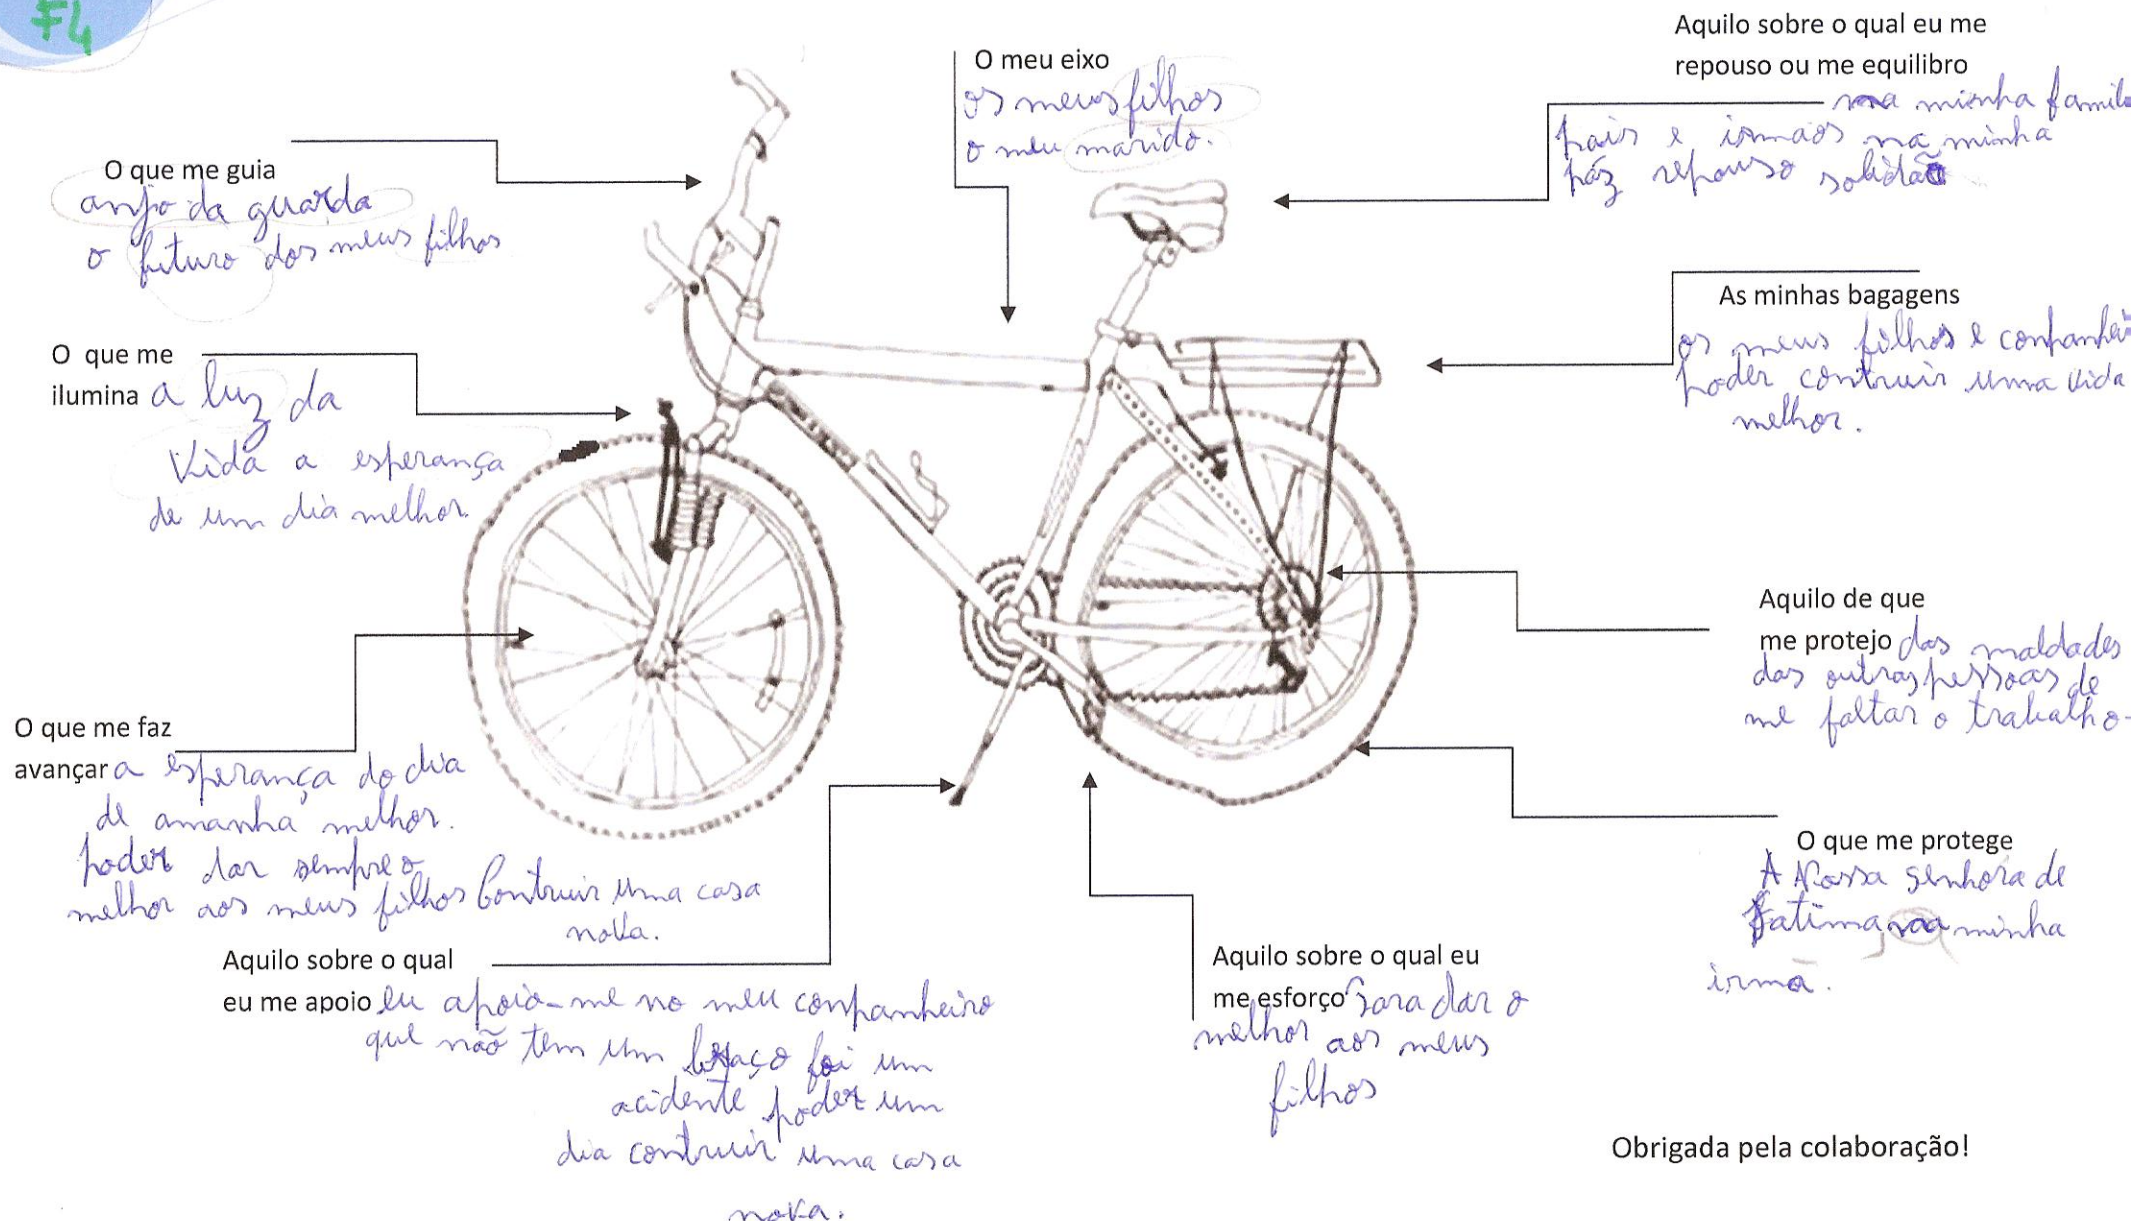 F4
O que me guia
anjo da guarda
o futuro dos meus filhos
O meu eixo
os meus filhos
o meu marido.
Aquilo sobre o qual eu me
repouso ou me equilibro
na minha famil
pais e irmãos na minha
páz repouso solidão
As minhas bagagens
os meus filhos e companhei
poder contruir uma vida
melhor.
O que me
ilumina a luz da
Vida a esperança
de um dia melhor.
Aquilo de que
me protejo das maldades
das outras pessoas de
me faltar o trabalho.
O que me faz
avançar a esperança do dia
de amanha melhor.
poder dar sempre o
melhor aos meus filhos Contruir uma casa
nova.
O que me protege
A Nossa Senhora de
Fatima, minha
irmã.
Aquilo sobre o qual
eu me apoio eu apoio-me no meu companheiro
que não tem um braço foi um
acidente poder um
dia contruir uma casa
nova.
Aquilo sobre o qual eu
me esforço Para dar o
melhor aos meus
filhos
Obrigada pela colaboração!